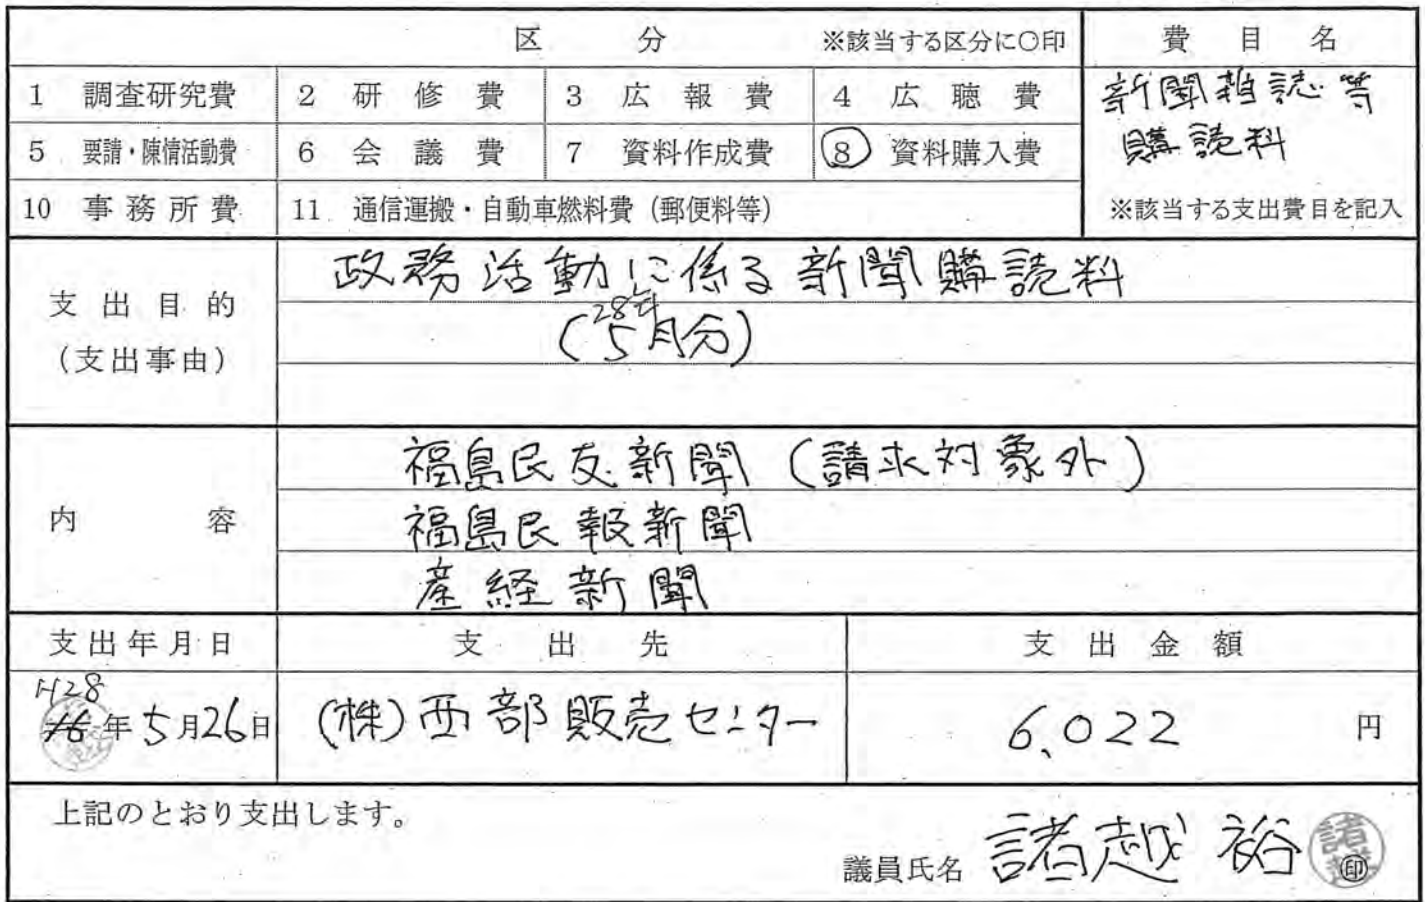 区 分 ※該当する区分に○印 費 目 名
1 調査研究費 2 研 修 費 3 広 報 費 4 広 聴 費
新聞雑誌等
5 要請・陳情活動費 6 会 議 費 7 資料作成費 8 資料購入費
購読料
10 事務所費 11 通信運搬・自動車燃料費(郵便料等) ※該当する支出費目を記入
支出目的
(支出事由)
政務活動に係る新聞購読料
28年
(5月分)
内 容
福島民友新聞(請求対象外)
福島民報新聞
産経新聞
支出年月日 支 出 先 支 出 金 額
H28
年5月26日 (株)西部販売センター 6,022 円
上記のとおり支出します。
議員氏名 諸越 裕 印